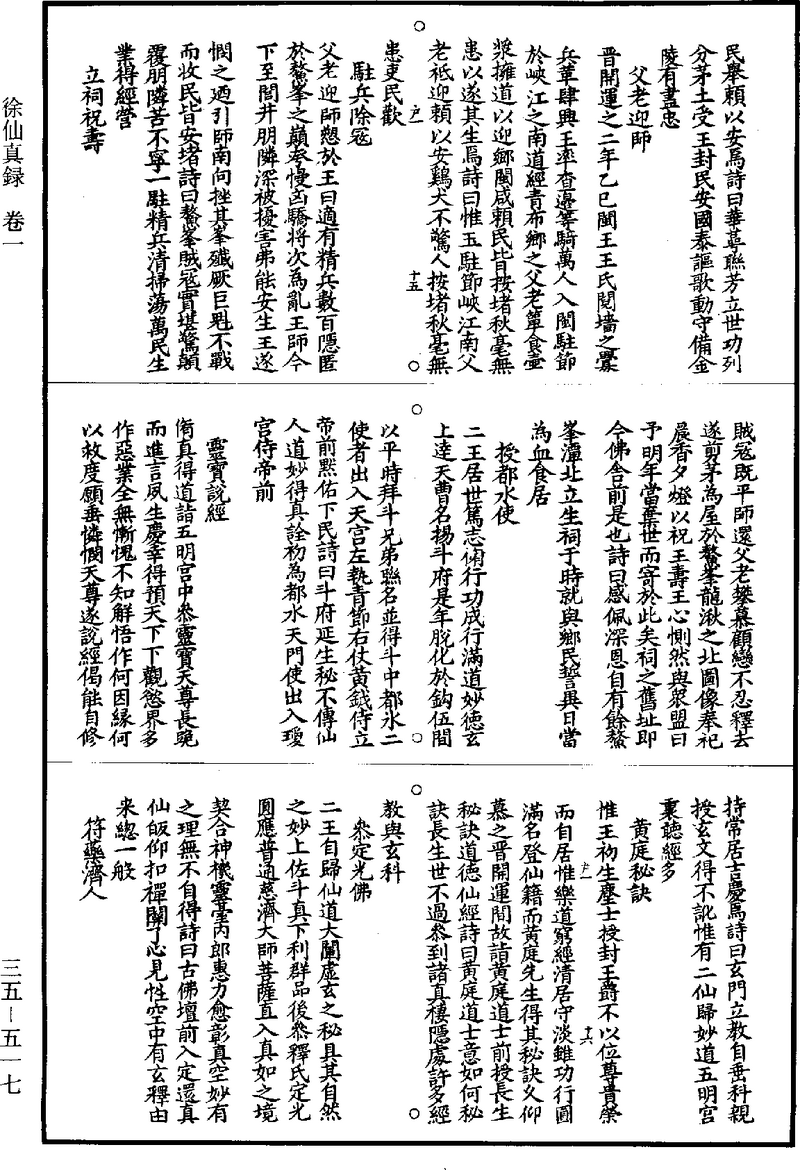 徐仙真録 卷一
三五—五一七
民舉賴以安焉詩曰華萼聯芳立世功列
分茅土受王封民安國泰謳歌動守備金
陵有盡忠
父老迎師
晉開運之二年乙巳閩王王氏鬩墻之釁
兵革肆興王率查邊等騎萬人入閩駐節
於峽江之南道經青布鄉之父老簞食壺
漿擁道以迎鄉閩咸賴民皆按堵秋毫無
患以遂其生焉詩曰惟玉駐節峽江南父
老祗迎賴以安鷄犬不驚人按堵秋毫無
十五
患吏民歡
駐兵除冦
父老迎師懇於王曰適有精兵數百隱匿
於鰲峯之巔桀慢凶驕將次為亂王師今
下至閭井朋隣深被擾害弗能安生王遂
憫之迺引師南向挫其峯殲厥巨魁不戰
而收民皆安堵詩曰鰲峯賊冦實堪驚顛
覆朋隣苦不寧一駐精兵清掃蕩萬民生
業得經營
立祠祝壽
賊冦既平師還父老攀慕顧戀不忍釋去
遂剪茅為屋於鰲峯龍湫之北圖像奉祀
晨香夕燈以祝王壽王心惻然與衆盟曰
予明年當棄世而寄於此矣祠之舊址即
今佛舍前是也詩曰感佩深恩自有餘鰲
峯潭北立生祠于時就與鄉民誓異日當
為血食居
授都水使
二王居世篤志脩行功成行滿道妙德玄
上達天曹名揚斗府是年脫化於鈎伍間
以平時拜斗兄弟聯名並得斗中都水二
使者出入天宮左執青節右仗黃鉞侍立
帝前黙佑下民詩曰斗府延生秘不傳仙
人道妙得真詮初為都水天門使出入璦
宮侍帝前
靈寶說經
脩真得道詣五明宮中叅靈寶天尊長跪
而進言夙生慶幸得預天下下觀慾界多
作惡業全無慚愧不知解悟作何因緣何
以救度願垂憐憫天尊遂說經偈能自修
持常居吉慶焉詩曰玄門立教自垂科親
授玄文得不訛惟有二仙歸妙道五明宮
裏聽經多
黃庭秘訣
惟王初生塵士授封王爵不以位尊貴榮
十六
而自居惟樂道窮經清居守淡錐功行圓
滿名登仙籍而黃庭先生得其秘訣久仰
慕之晉開運間故詣黃庭道士前授長生
秘訣道德仙經詩曰黃庭道士意如何秘
訣長生世不過叅到諸真樓隱處許多經
教與玄科
叅定光佛
二王自歸仙道大闡虛玄之秘具其自然
之妙上佐斗真下利群品後叅釋氏定光
圓應普通慈濟大師菩薩直入真如之境
契合神機靈臺內郎惠力愈彰真空妙有
之理無不自得詩曰古佛壇前入定還真
仙皈仰扣禪關了心見性空中有玄釋由
來緫一般
符藥濟人